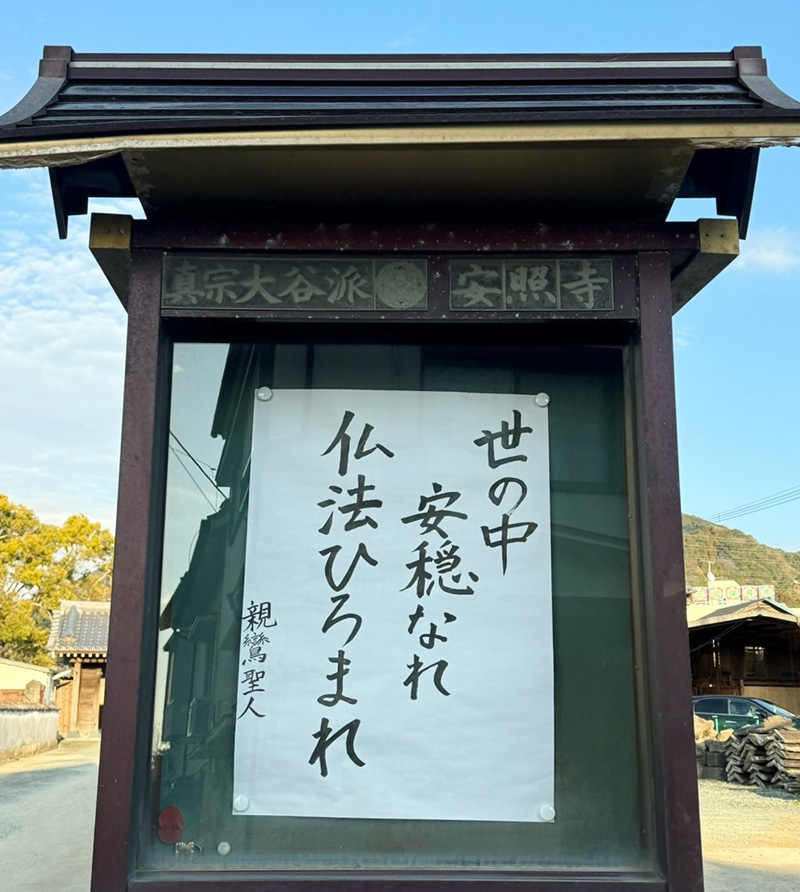 真宗大谷派 安照寺
世の中
安穏なれ
仏法ひろまれ
親鸞聖人